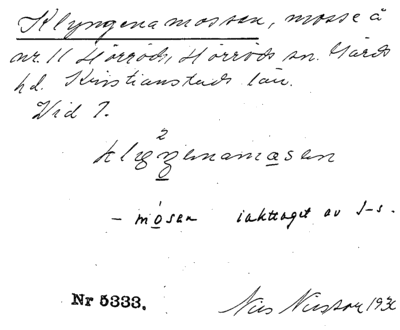 Klyngenamossen, mosse å
nr. 11 Hörröd, Hörröds sn. Gärds
hd. Kristianstads län.
Vid 7.
2
klyŋenamosen
- mósen iakttaget av J-s.
Nr 5333.
Nils Nilsson 1930